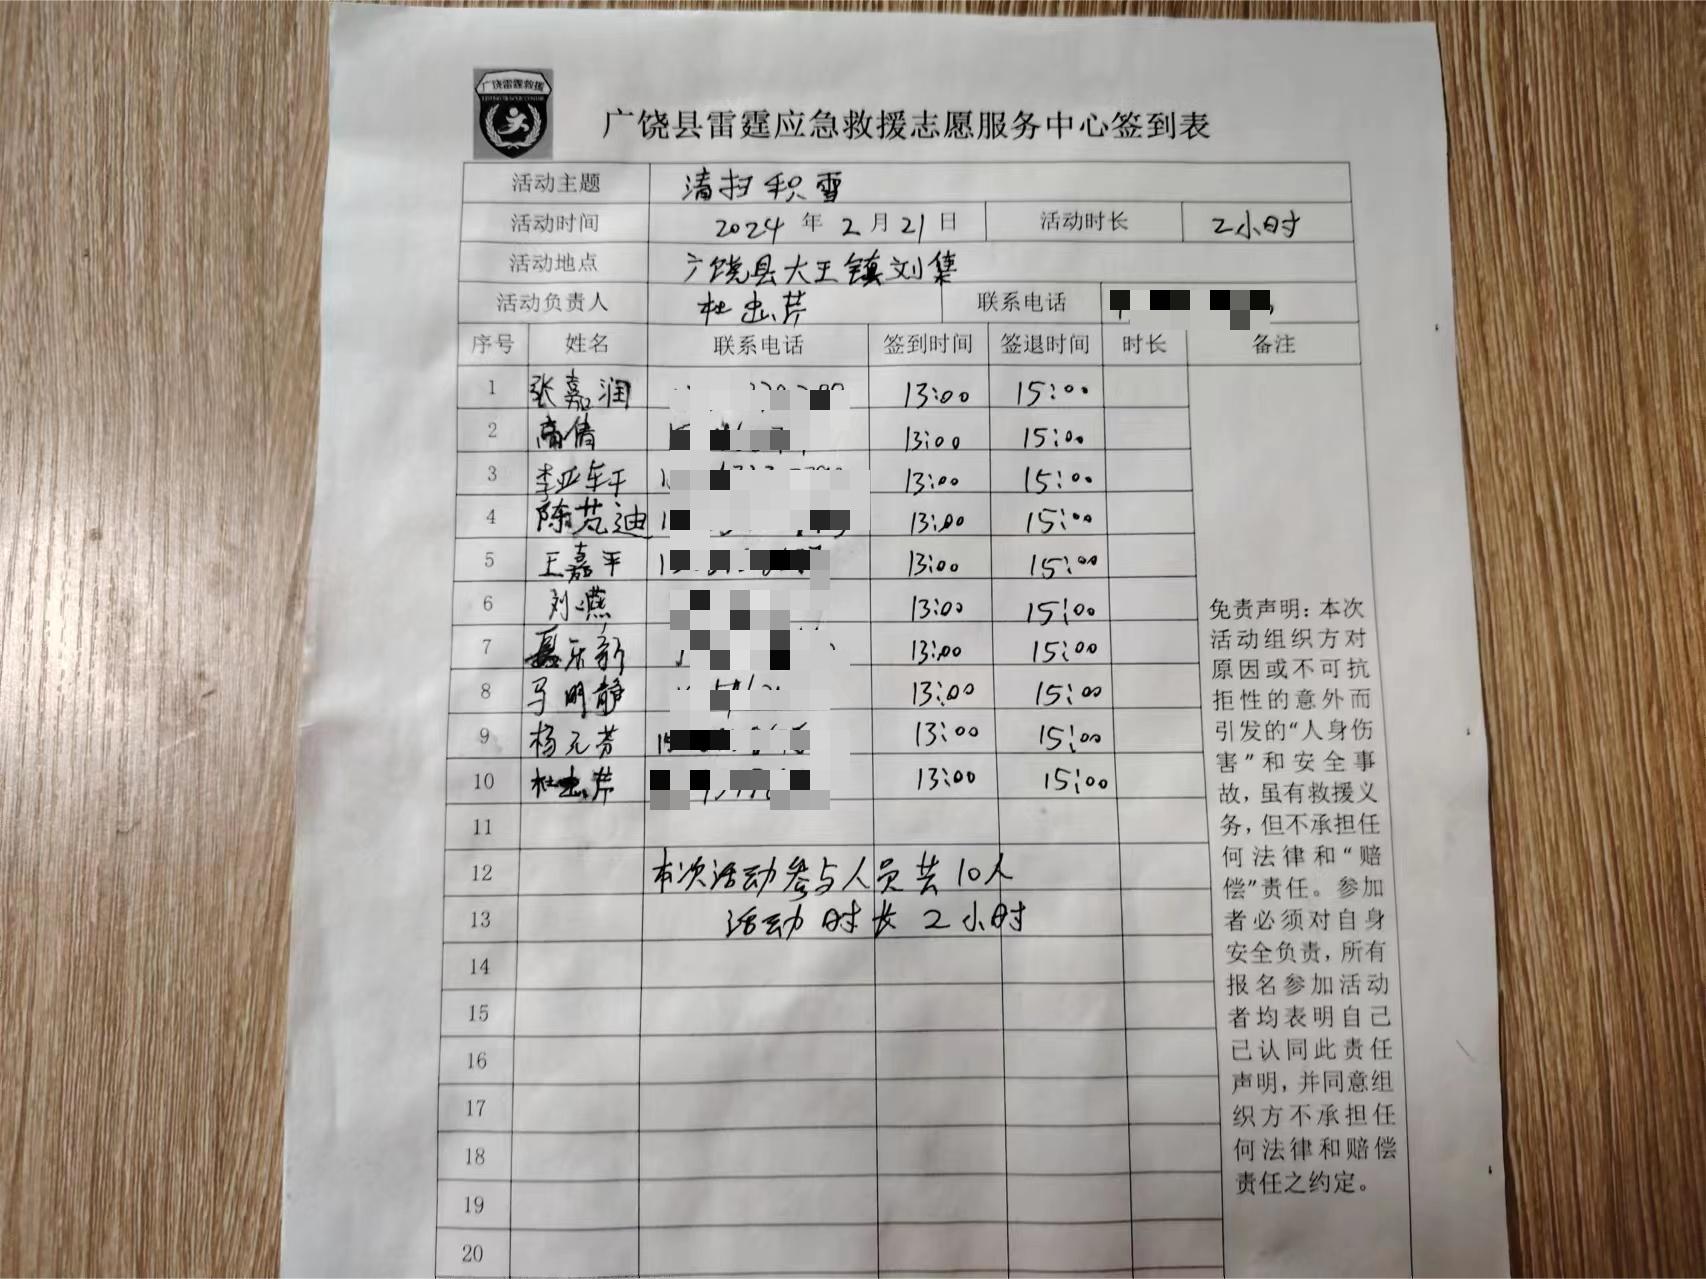 广饶雷霆救援
广饶县雷霆应急救援志愿服务中心签到表
活动主题 清扫积雪
活动时间 2024 年 2 月 21 日 活动时长 2小时
活动地点 广饶县大王镇刘集
活动负责人 杜忠芹 联系电话
序号 姓名 联系电话 签到时间 签退时间 时长 备注
1 张嘉润 13:00 15:00
2 高倩 13:00 15:00
3 李亚军 13:00 15:00
4 陈芃迪 13:00 15:00
5 王嘉平 13:00 15:00
6 刘燕 13:00 15:00
7 聂乐新 13:00 15:00
8 马明静 13:00 15:00
9 杨元芬 13:00 15:00
10 杜忠芹 13:00 15:00
11
12 本次活动参与人员共10人
13 活动时长2小时
14
15
16
17
18
19
20
免责声明：本次
活动组织方对
原因或不可抗
拒性的意外而
引发的“人身伤
害”和安全事
故，虽有救援义
务，但不承担任
何法律和“赔
偿”责任。参加
者必须对自身
安全负责，所有
报名参加活动
者均表明自己
已认同此责任
声明，并同意组
织方不承担任
何法律和赔偿
责任之约定。